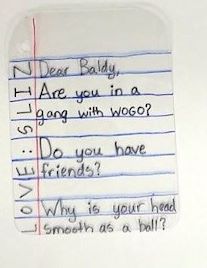 Dear Baldy,
Are you in a
gang with WOGO?
Do you have
friends?
Why is your head
smooth as a ball?
LOVE: ISLIN